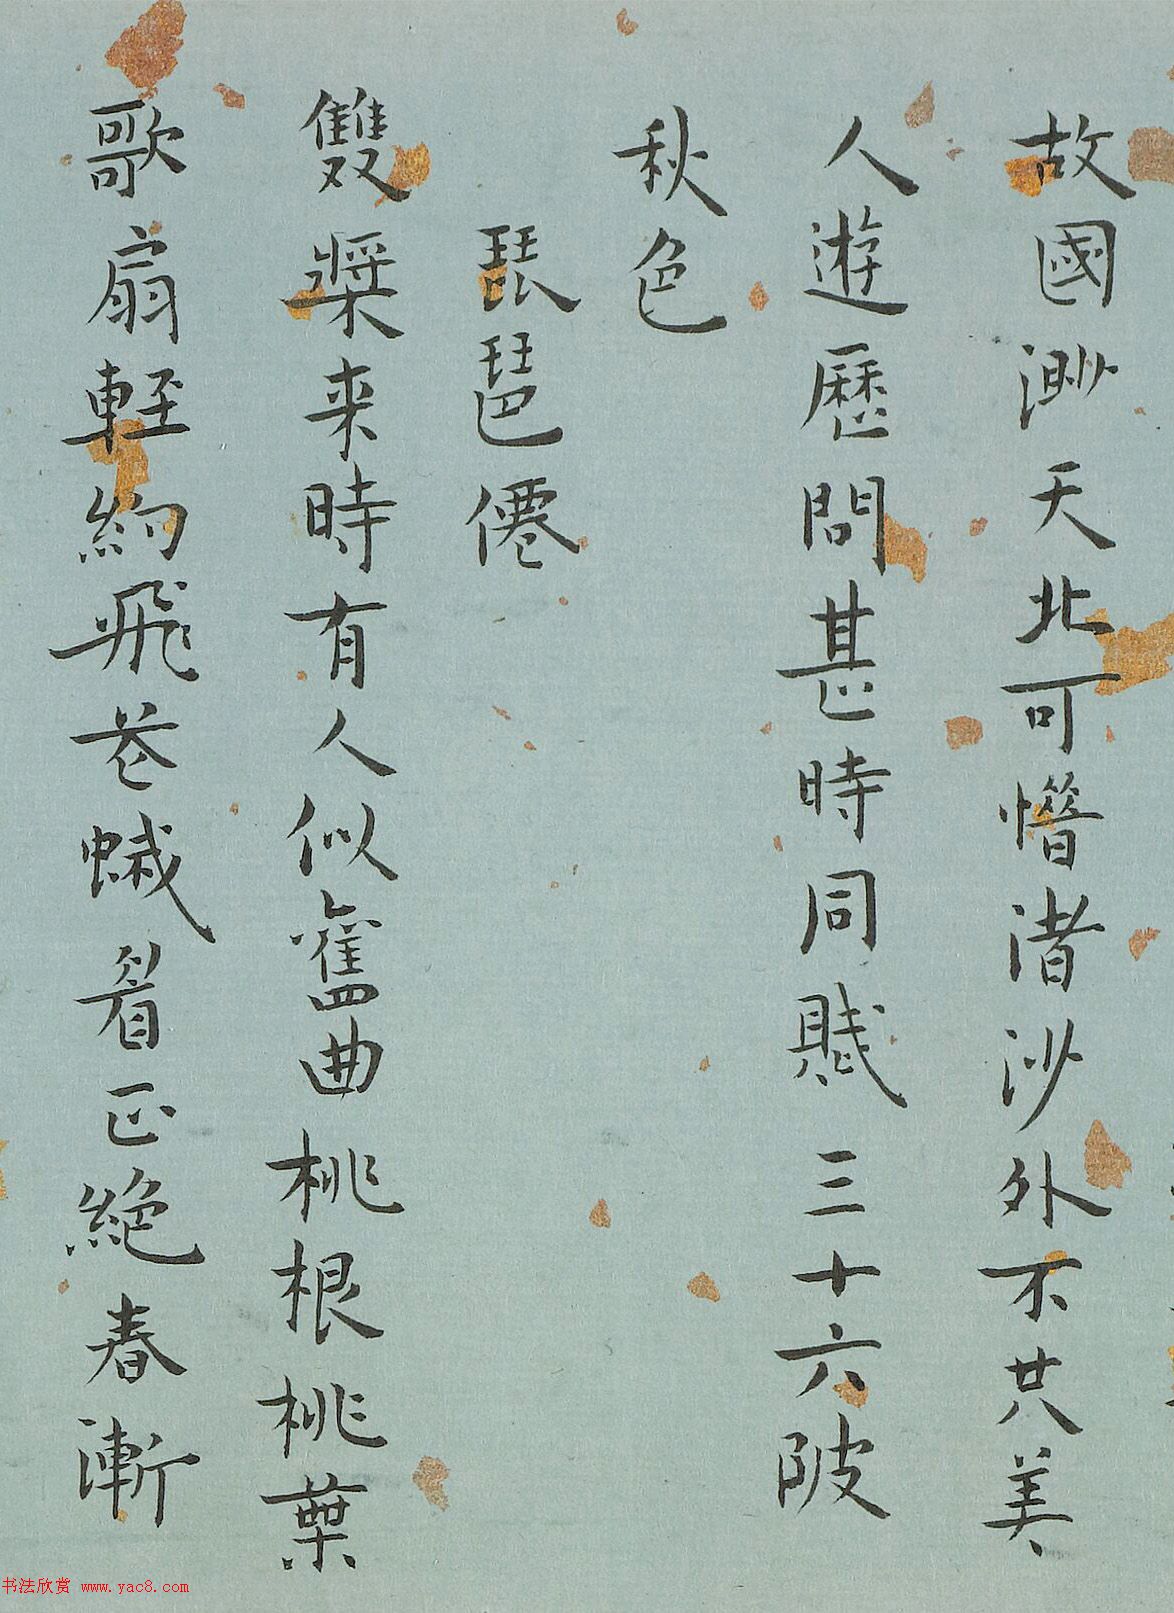 故國渺天北可憯渚沙外不共美
人遊歷問甚時同賦三十六陂
秋色
琵琶僊
雙槳来時有人似舊曲桃根桃葉
歌扇軽約飛花蛾眉正絕春漸
书法欣赏 www.yac8.com